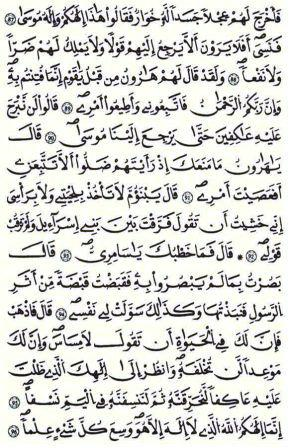 فَأَخْرَجَ لَهُمْ عِجْلًا جَسَدًا لَّهُۥ خُوَارٌ فَقَالُوا۟ هَٰذَا إِلَٰهُكُمْ وَإِلَٰهُ مُوسَىٰ ٨٧
فَنَسِيَ أَفَلَا يَرَوْنَ أَلَّا يَرْجِعُ إِلَيْهِمْ قَوْلًا وَلَا يَمْلِكُ لَهُمْ ضَرًّا
وَلَا نَفْعًا ٨٨ وَلَقَدْ قَالَ لَهُمْ هَٰرُونُ مِن قَبْلُ يَٰقَوْمِ إِنَّمَا فُتِنتُم بِهِۦ
وَإِنَّ رَبَّكُمُ ٱلرَّحْمَٰنُ فَٱتَّبِعُونِي وَأَطِيعُوا۟ أَمْرِي ٨٩ قَالُوا۟ لَن نَّبْرَحَ
عَلَيْهِ عَٰكِفِينَ حَتَّىٰ يَرْجِعَ إِلَيْنَا مُوسَىٰ ٩٠ قَالَ
يَٰهَٰرُونُ مَا مَنَعَكَ إِذْ رَأَيْتَهُمْ ضَلُّوا۟ أَلَّا تَتَّبِعَنِۦ
أَفَعَصَيْتَ أَمْرِي ٩١ قَالَ يَبْنَؤُمَّ لَا تَأْخُذْ بِلِحْيَتِي وَلَا بِرَأْسِي
إِنِّي خَشِيتُ أَن تَقُولَ فَرَّقْتَ بَيْنَ بَنِي إِسْرَآءِيلَ وَلَمْ تَرْقُبْ
قَوْلِي ٩٢ * قَالَ فَمَا خَطْبُكَ يَٰسَٰمِرِيُّ ٩٣ قَالَ
بَصُرْتُ بِمَا لَمْ يَبْصُرُوا۟ بِهِۦ فَقَبَضْتُ قَبْضَةً مِّنْ أَثَرِ
ٱلرَّسُولِ فَنَبَذْتُهَا وَكَذَٰلِكَ سَوَّلَتْ لِي نَفْسِي ٩٤ قَالَ فَٱذْهَبْ
فَإِنَّ لَكَ فِي ٱلْحَيَوٰةِ أَن تَقُولَ لَا مِسَاسَ وَإِنَّ لَكَ
مَوْعِدًا لَّن تُخْلَفَهُۥ وَٱنظُرْ إِلَىٰ إِلَٰهِكَ ٱلَّذِي ظَلْتَ
عَلَيْهِ عَاكِفًا لَّنُحَرِّقَنَّهُۥ ثُمَّ لَنَنسِفَنَّهُۥ فِي ٱلْيَمِّ نَسْفًا ٩٥
إِنَّمَا إِلَٰهُكُمُ ٱللَّهُ ٱلَّذِي لَا إِلَٰهَ إِلَّا هُوَ وَسِعَ كُلَّ شَيْءٍ عِلْمًا ٩٦